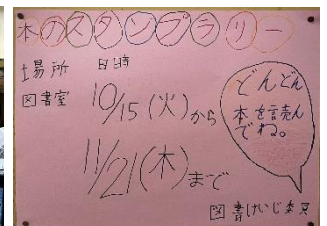 本のスタンプラリー
場所 日時
図書室 10/15(火)から
11/21(木)まで
どんどん
本を読ん
でね。
図書けいじ委員